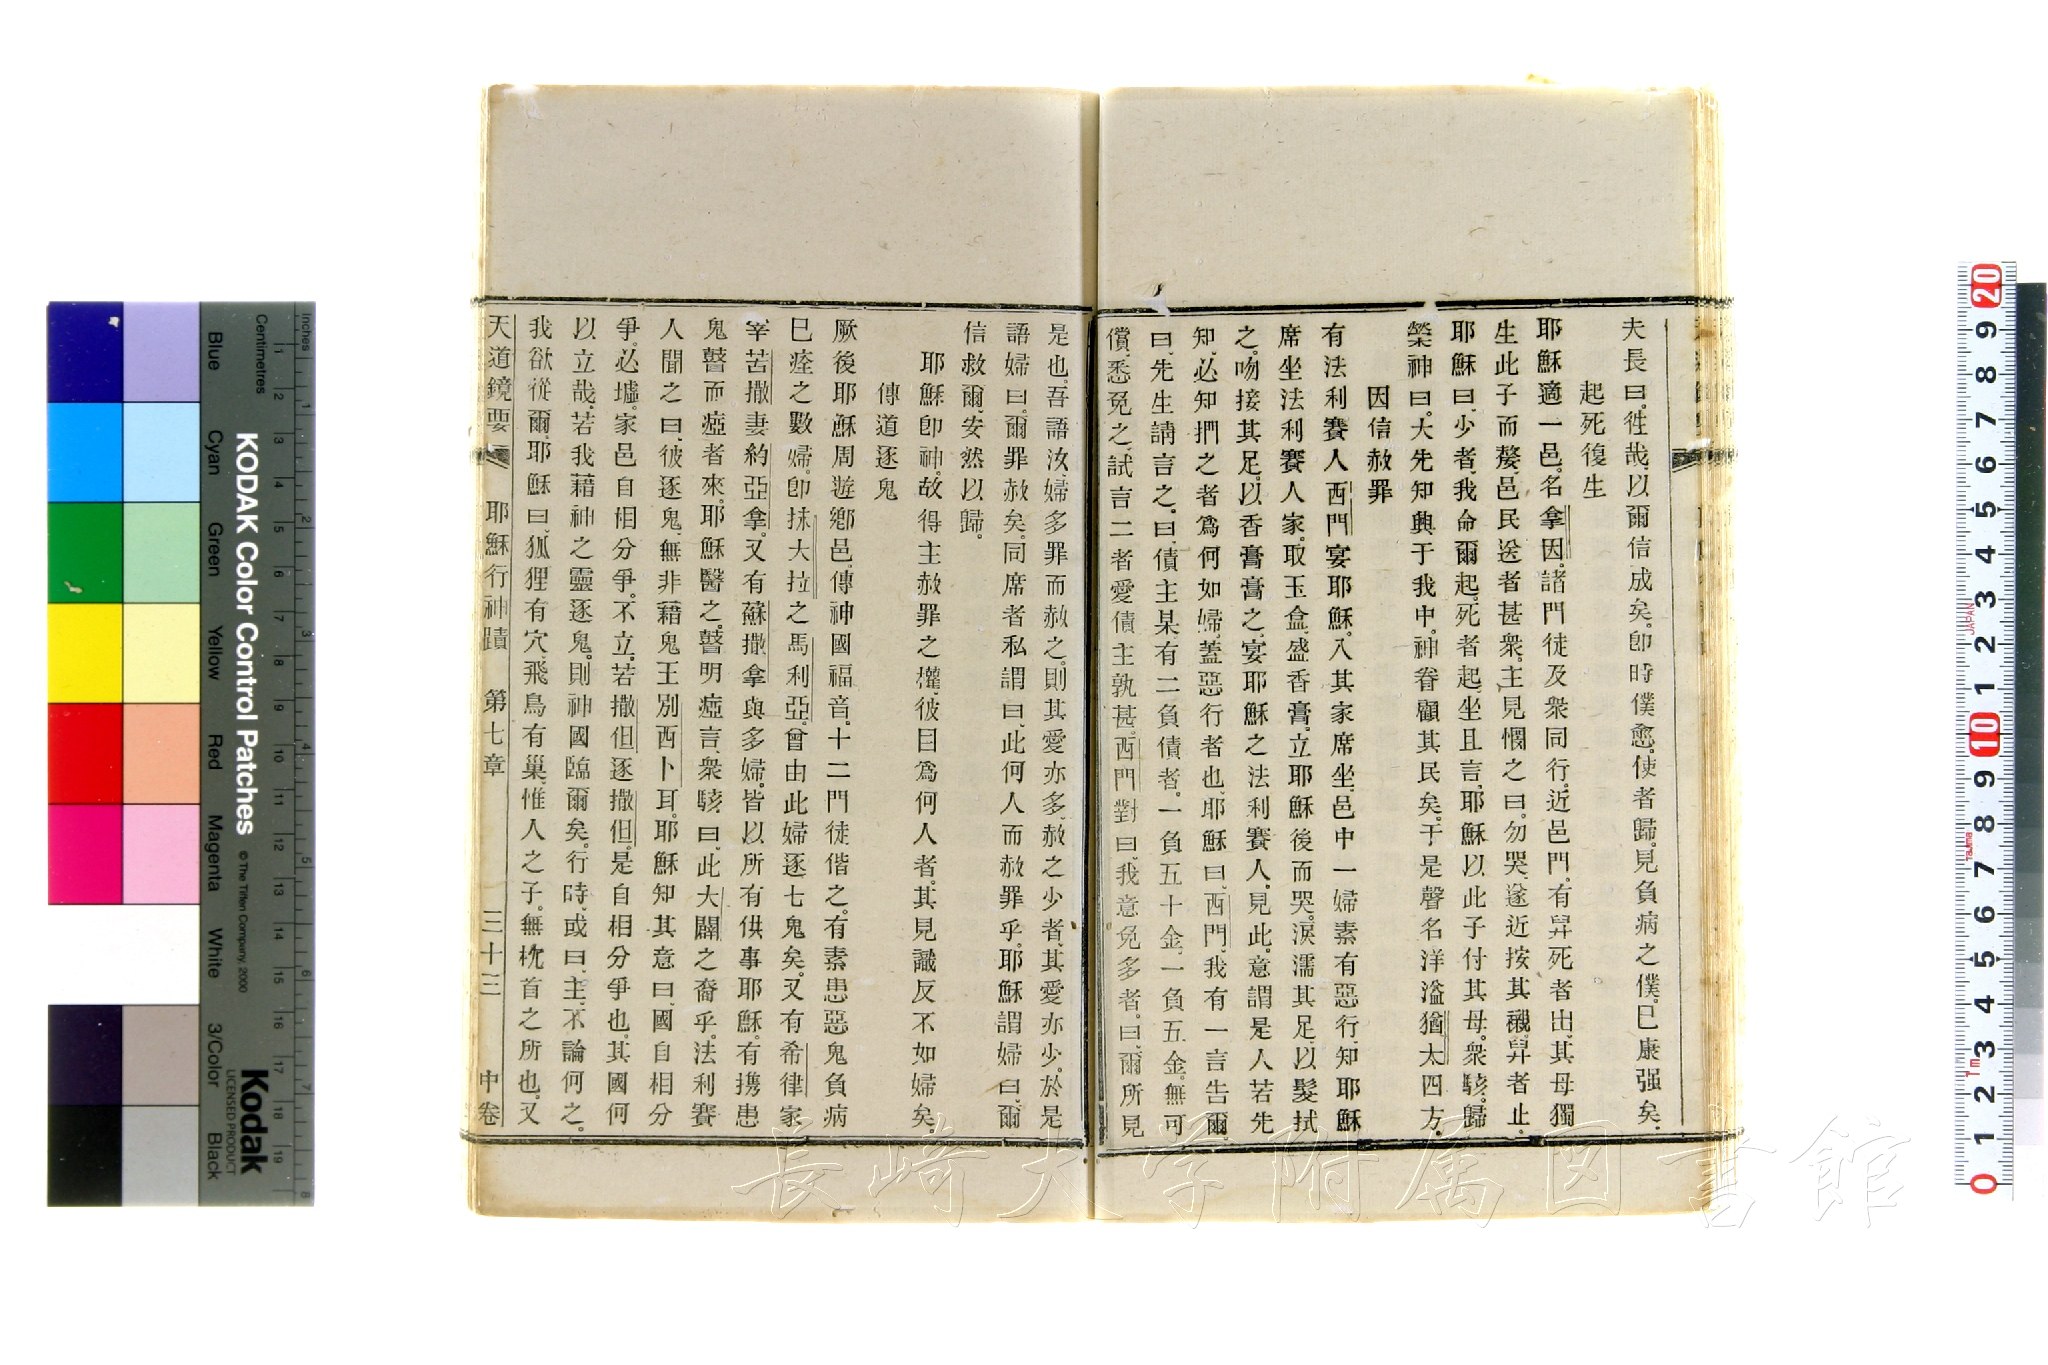 夫長曰。徃哉、以爾信成矣。卽時僕愈。使者歸。見負病之僕。已康强矣。
起死復生
耶穌適一邑。名拿因。諸門徒及衆同行。近邑門。有舁死者出、其母獨
生此子而嫠。邑民送者甚衆。主見憫之曰。勿哭。遂近按其櫬。舁者止。
耶穌曰。少者、我命爾起。死者起。坐且言、耶穌以此子付其母。衆駭。歸
榮神曰。大先知興于我中。神眷顧其民矣。于是聲名洋溢猶太四方。
因信赦罪
有法利賽人西門宴耶穌。入其家席坐、邑中一婦素有惡行、知耶穌
席坐法利賽人家。取玉盒、盛香膏。立耶穌後而哭。淚濡其足、以髮拭
之。吻接其足。以香膏膏之、宴耶穌之法利賽人。見此。意謂是人若先
知、必知捫之者爲何如婦。蓋惡行者也、耶穌曰、西門、我有一言告爾、
曰、先生請言之。曰、債主某、有二負債者。一負五十金、一負五金。無可
償、悉免之。試言二者愛債主孰甚。西門對曰、我意免多者。曰、爾所見
是也。吾語汝、婦多罪而赦之。則其愛亦多、赦之少者、其愛亦少。於是
語婦曰、爾罪赦矣。同席者私謂曰、此何人而赦罪乎。耶穌謂婦曰、爾
信救爾、安然以歸。
耶穌卽神。故得主赦罪之權、彼目爲何人者、其見識反不如婦矣。
傳道逐鬼
厥後耶穌周遊鄉邑、傳神國福音。十二門徒偕之。有素患惡鬼負病
已痊之數婦。卽抹大拉之馬利亞。曾由此婦逐七鬼矣。又有希律家
宰苦撒妻約亞拿。又有蘇撒拿與多婦。皆以所有供事耶穌。有攜患
鬼瞽而瘂者來。耶穌醫之。瞽明瘂言、衆駭曰、此大闢之裔乎。法利賽
人聞之曰、彼逐鬼、無非藉鬼王別西卜耳。耶穌知其意曰、國自相分
爭。必墟。家邑自相分爭。不立。若撒但逐撒但。是自相分爭也。其國何
以立哉。若我藉神之靈逐鬼。則神國臨爾矣。行時、或曰、主、不論何之。
我欲從爾。耶穌曰、狐狸有穴、飛鳥有巢、惟人之子、無枕首之所也。又
天道鏡要　耶穌行神蹟　第七章　三十三　中卷
KODAK Color Control Patches
© The Tiffen Company, 2000
Kodak
LICENSED PRODUCT
Inches
Centimetres
Blue
Cyan
Green
Yellow
Red
Magenta
White
3/Color
Black
長崎大学附属図書館